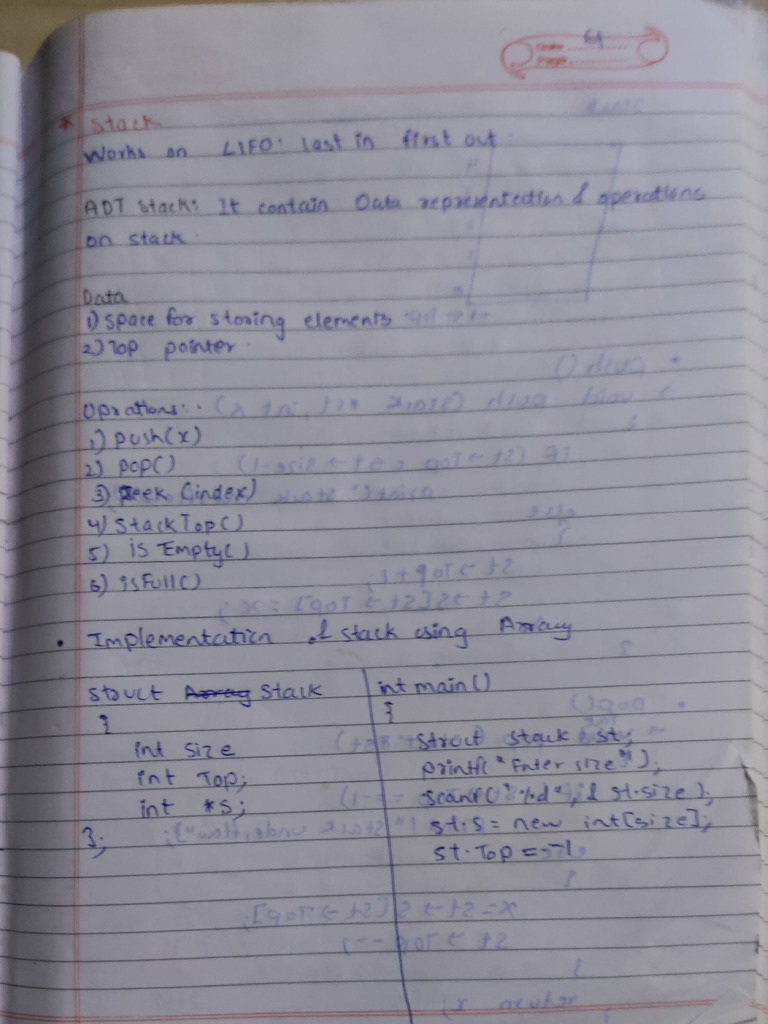 Date 61
Page
* Stack
Works on LIFO: last in first out.
ADT Stack: It contain Data representation & operations
on stack.
Data
1) space for storing elements
2) Top pointer.
Oprations:.
1) push(x)
2) pop()
3) peek (index)
4) StackTop()
5) is Empty()
6) isFull()
• Implementation of stack using Array
struct Array Stack
{
int size
int Top;
int *S;
};
int main()
{
struct stack st;
printf("Enter size");
scanf("%d", & st.size);
st.s = new int[size];
st.Top = -1;